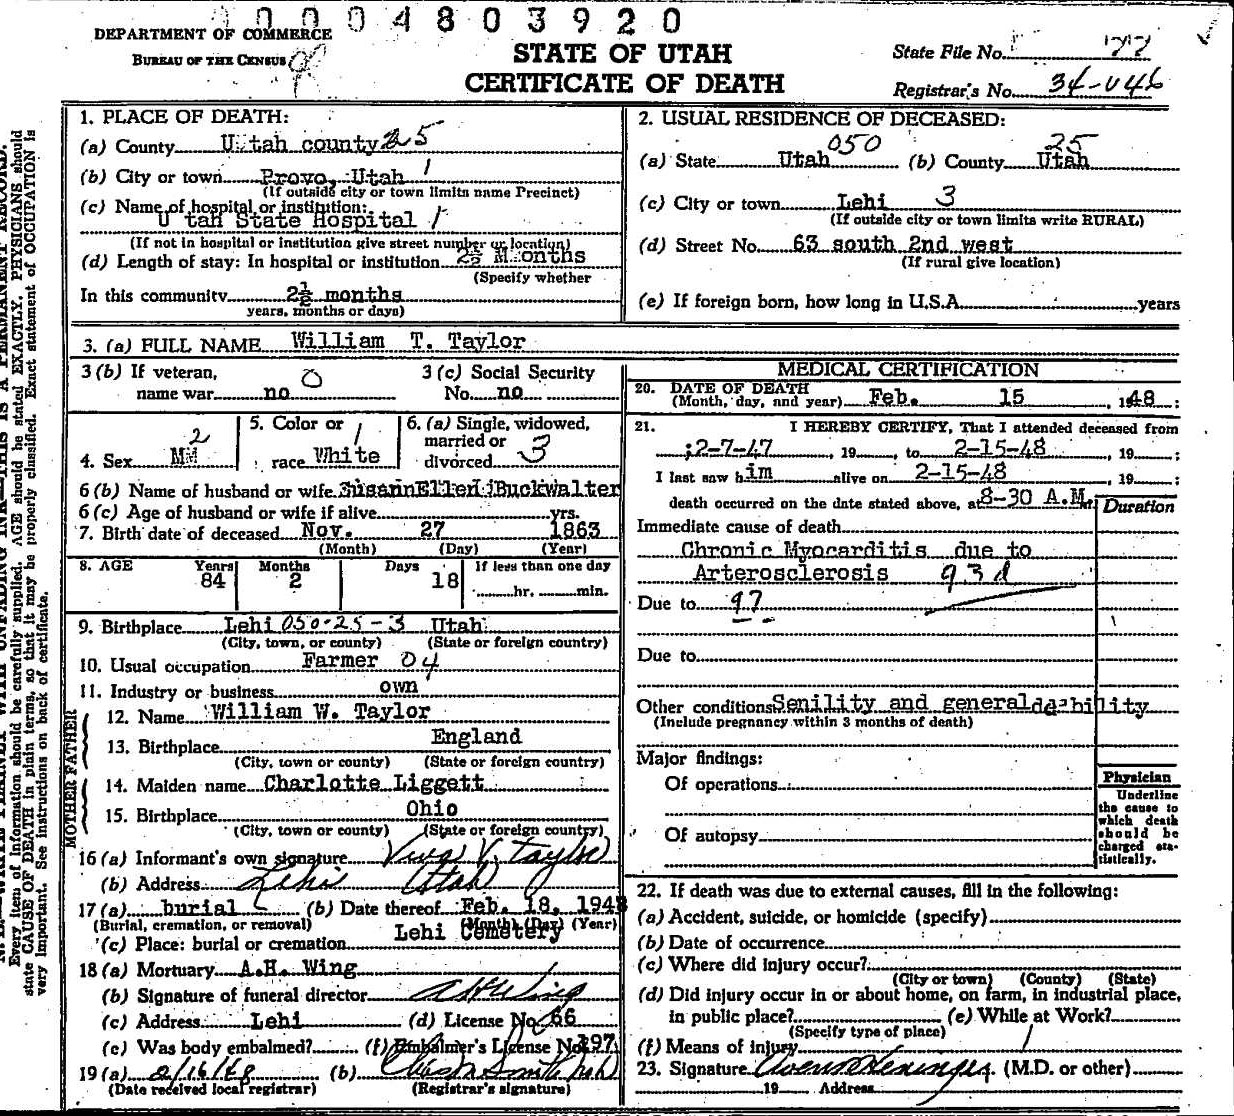 0 0 0 4 8 0 3 9 2 0
DEPARTMENT OF COMMERCE
BUREAU OF THE CENSUS
STATE OF UTAH
CERTIFICATE OF DEATH
State File No. 77
Registrar's No. 34-046
1. PLACE OF DEATH:
(a) County U tah county 25
(b) City or town Provo, Utah 1
(If outside city or town limits name Precinct)
(c) Name of hospital or institution:
U tah State Hospital 1
(If not in hospital or institution give street number or location)
(d) Length of stay: In hospital or institution 2½ Months
(Specify whether
In this community 2½ months
years, months or days)
2. USUAL RESIDENCE OF DECEASED:
050 25
(a) State Utah (b) County Utah
(c) City or town Lehi 3
(If outside city or town limits write RURAL)
(d) Street No. 63 south 2nd west
(If rural give location)
(e) If foreign born, how long in U.S.A. years
3. (a) FULL NAME William T. Taylor
3 (b) If veteran, name war no 0
3 (c) Social Security No. no
4. Sex M 2
5. Color or race White 1
6. (a) Single, widowed, married or divorced 3
6 (b) Name of husband or wife SusannEllen Buckwalter
6 (c) Age of husband or wife if alive yrs.
7. Birth date of deceased Nov. 27 1863
(Month) (Day) (Year)
8. AGE Years Months Days If less than one day
84 2 18 hr. min.
9. Birthplace Lehi 050-25-3 Utah
(City, town, or county) (State or foreign country)
10. Usual occupation Farmer 04
11. Industry or business own
FATHER
12. Name William W. Taylor
13. Birthplace England
(City, town or county) (State or foreign country)
MOTHER
14. Maiden name Charlotte Liggett
15. Birthplace Ohio
(City, town or county) (State or foreign country)
16 (a) Informant's own signature V. Taylor
(b) Address Lehi Utah
17 (a) burial (b) Date thereof Feb. 18, 1948
(Burial, cremation, or removal) (Month) (Day) (Year)
(c) Place: burial or cremation Lehi Cemetery
18 (a) Mortuary A.H. Wing
(b) Signature of funeral director AH Wing
(c) Address Lehi (d) License No. 66
(e) Was body embalmed? (f) Embalmer's License No. 197
19 (a) 2/16/48 (b)
(Date received local registrar) (Registrar's signature)
MEDICAL CERTIFICATION
20. DATE OF DEATH
(Month, day, and year) Feb. 15, 1948;
21. I HEREBY CERTIFY, That I attended deceased from
;2-7-47, 19 , to 2-15-48, 19 ;
I last saw him alive on 2-15-48, 19 ;
death occurred on the date stated above, at 8-30 A.M.
Duration
Immediate cause of death
Chronic Myocarditis due to
Arterosclerosis 93d
Due to 97
Due to
Other conditions Senility and general deability
(Include pregnancy within 3 months of death)
Major findings:
Of operations
Of autopsy
Physician
Underline
the cause to
which death
should be
charged sta-
tistically.
22. If death was due to external causes, fill in the following:
(a) Accident, suicide, or homicide (specify)
(b) Date of occurrence
(c) Where did injury occur?
(City or town) (County) (State)
(d) Did injury occur in or about home, on farm, in industrial place,
in public place? (e) While at Work?
(Specify type of place)
(f) Means of injury
23. Signature (M.D. or other)
19 Address
Every item of information should be carefully supplied. AGE should be stated EXACTLY. PHYSICIANS should
state CAUSE OF DEATH in plain terms, so that it may be properly classified. Exact statement of OCCUPATION is
very important. See instructions on back of certificate.